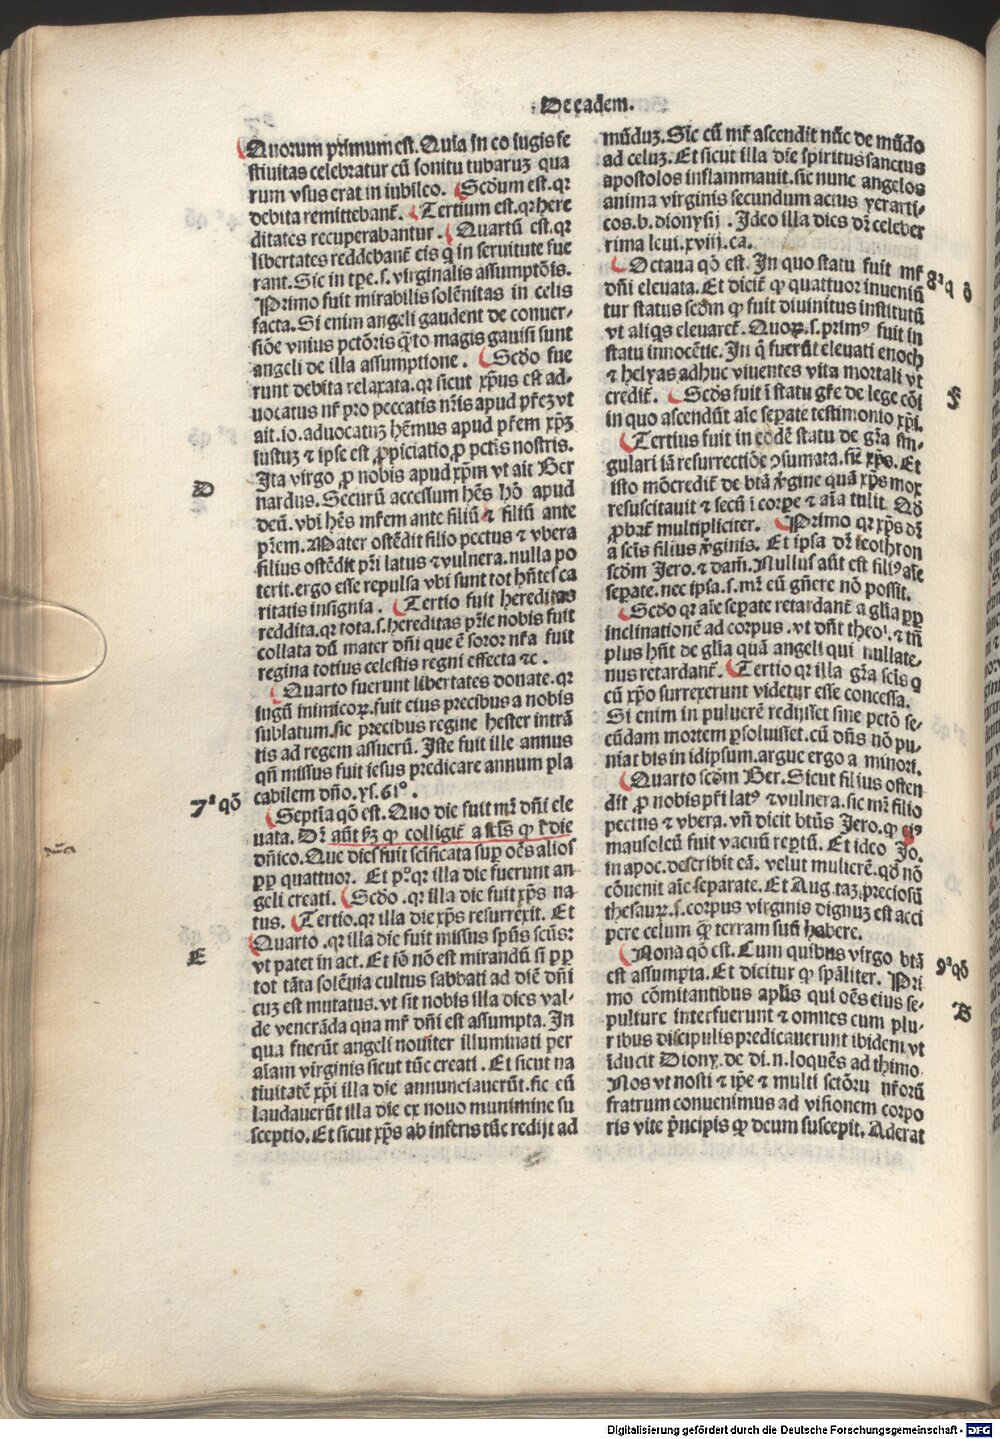 De eadem.
Quorum primum est. Quia in eo iugis fe
stiuitas celebratur cū sonitu tubaruꝫ qua
rum vsus erat in iubileo. Scdum est.qꝛ
debita remittebanť. Tertium est.qꝛ here
ditates recuperabantur. Quartū est.qꝛ
libertates reddebanť eis ꝗ in seruitute fue
rant. Sic in tꝑe.s.virginalis assumptōis.
Primo fuit mirabilis solēnitas in celis
facta. Si enim angeli gaudent de conuer-
siōe vnius pctōris q̃to magis gauisi sunt
angeli de illa assumptione. Scdo fue
runt debita relaxata.qꝛ sicut xp̄us est ad-
uocatus nr̄ pro peccatis nr̄is apud pr̄eꝫ vt
ait.io.aduocatuꝫ hēmus apud pr̄em xp̄ꝫ
iustuꝫ ⁊ ipse est ꝓpiciatio ꝓ pctis nostris.
Ita virgo ꝓ nobis apud xp̄m vt ait Ber
nardus. Securū accessum hēs hō apud
deū. vbi hēs mr̄em ante filiū ⁊ filiū ante
pr̄em. Mater ostēdit filio pectus ⁊ vbera
filius ostēdit pr̄i latus ⁊ vulnera. nulla po
terit.ergo esse repulsa vbi sunt tot hn̄tes ca
ritatis insignia. Tertio fuit hereditas
reddita.qꝛ tota.s.hereditas pr̄ie nobis fuit
collata dū mater dn̄i que ē soror nr̄a fuit
regina totius celestis regni effecta ⁊c.
Quarto fuerunt libertates donate.qꝛ
iugū inimicoꝝ.fuit eius precibus a nobis
sublatum.sic precibus regine hester intrā
tis ad regem assuerū. Iste fuit ille annus
qn̄ missus fuit iesus predicare annum pla
cabilem dn̄o.ys.61°.
7ᵃ qō
Septīa qō est. Quo die fuit mr̄ dn̄i ele
uata. Dr̄ aūt ꝙ colligiť a scīs ꝙ
dn̄ico. Que dies fuit scīficata suꝑ oēs alios
ꝓꝑ quattuor. Et p°.qꝛ illa die fuerunt an-
geli creati. Scdo.qꝛ illa die fuit xp̄s na
tus. Tertio.qꝛ illa die xp̄s resurrexit. Et
Quarto.qꝛ illa die fuit missus spūs scūs:
vt patet in act. Et iō nō est mirandū si ꝓꝑ
tot tāta solēnia cultus sabbati ad diē dn̄i
cuꝫ est mutatus.vt sit nobis illa dies val-
de venerāda qua mr̄ dn̄i est assumpta. In
qua fuerūt angeli nouiter illuminati per
aīam virginis sicut tūc creati. Et sicut na
tiuitatē xp̄i illa die annunciauerūt.sic cū
laudauerūt illa die ex nouo munimine su
sceptio. Et sicut xp̄s ab inferis tūc redijt ad
D
E
mūduꝫ. Sic cū mr̄ ascendit nūc de mūdo
ad celuꝫ. Et sicut illa die spiritus sanctus
apostolos inflammauit.sic nunc angelos
anima virginis secundum actus yerarti-
cos.b.dionysij. Ideo illa dies dr̄ celeber
rima leui.xviij.ca.
8ᵃ qō
Octaua qō est. In quo statu fuit mr̄
dn̄i eleuata. Et diciť ꝙ quattuor inueniū
tur status scdom ꝙ fuit diuinitus institutū
vt aliꝗs eleuareť. Quoꝝ.s.prim⁹ fuit in
statu innocētie. In ꝗ fuerūt eleuati enoch
⁊ helyas adhuc viuentes vita mortali vt
crediť. Scds fuit ī statu gr̄e de lege cōi
in quo ascendūt aīe seꝑate testimonio xp̄i.
Tertius fuit in eodē statu de gr̄a sin-
gulari iā resurrectiōe ꝯsumata.sic xp̄s. Et
isto mō crediť de btā ꝟgine quā xp̄s mox
resuscitauit ⁊ secū ī corꝑe ⁊ aīa tulit. Qđ
ꝓbať multipliciter. Primo qꝛ xp̄s dr̄
a scīs filius ꝟginis. Et ipsa dr̄ teothron
scdom Jero.⁊ dam̄. Nullus aūt est fili⁹ aīe
seꝑate.nec ipsa.s.mr̄ eū gn̄ere nō possit.
Scdo qꝛ aīe seꝑate retardanť a gl̄ia ꝓꝑ
inclinationē ad corpus.vt dn̄t theo¹.⁊ tn̄
plus hn̄t de gl̄ia quā angeli qui nullate-
nus retardanť. Tertio qꝛ illa gr̄a scīs ꝗ
cū xp̄o surrexerunt videtur esse concessa.
Si enim in puluerē redijsset sine pctō se-
cūdam mortem ꝑsoluisset.cū dn̄s nō pu-
niat bis in idipsum.argue ergo a minori.
Quarto scdom Ber. Sicut filius osten
dit ꝓ nobis pr̄i lat⁹ ⁊ vulnera.sic mr̄ filio
pectus ⁊ vbera. vn̄ dicit btūs Jero.ꝙ ei⁹
mausoleū fuit vacuū reꝑtū. Et ideo Jo.
in apoc.describit eā. velut mulierē.qđ nō
cōuenit aīe separate. Et Aug.taꝫ preciosū
thesauꝝ.s.corpus virginis dignuꝫ est acci
pere celum q̃ terram sūm habere.
9ᵃ qō
Nona qō est. Cum quibus virgo btā
est assumpta. Et dicitur ꝙ spāliter. Pri
mo cōmitantibus apl̄is qui oēs eius se-
pulture interfuerunt ⁊ omnes cum plu-
ribus discipulis predicauerunt ibidem vt
īducit Diony.de di.n.loquēs ad thimo.
Nos vt nosti ⁊ ip̄e ⁊ multi sctōru nr̄orū
fratrum conuenimus ad visionem corpo
ris vite p̄ncipis ꝙ deum suscepit. Aderat
B
Digitalisierung gefördert durch die Deutsche Forschungsgemeinschaft - DFG